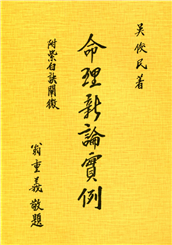 吳俊民著
命理新論實例
附紫白訣闡微
翁重義 敬題